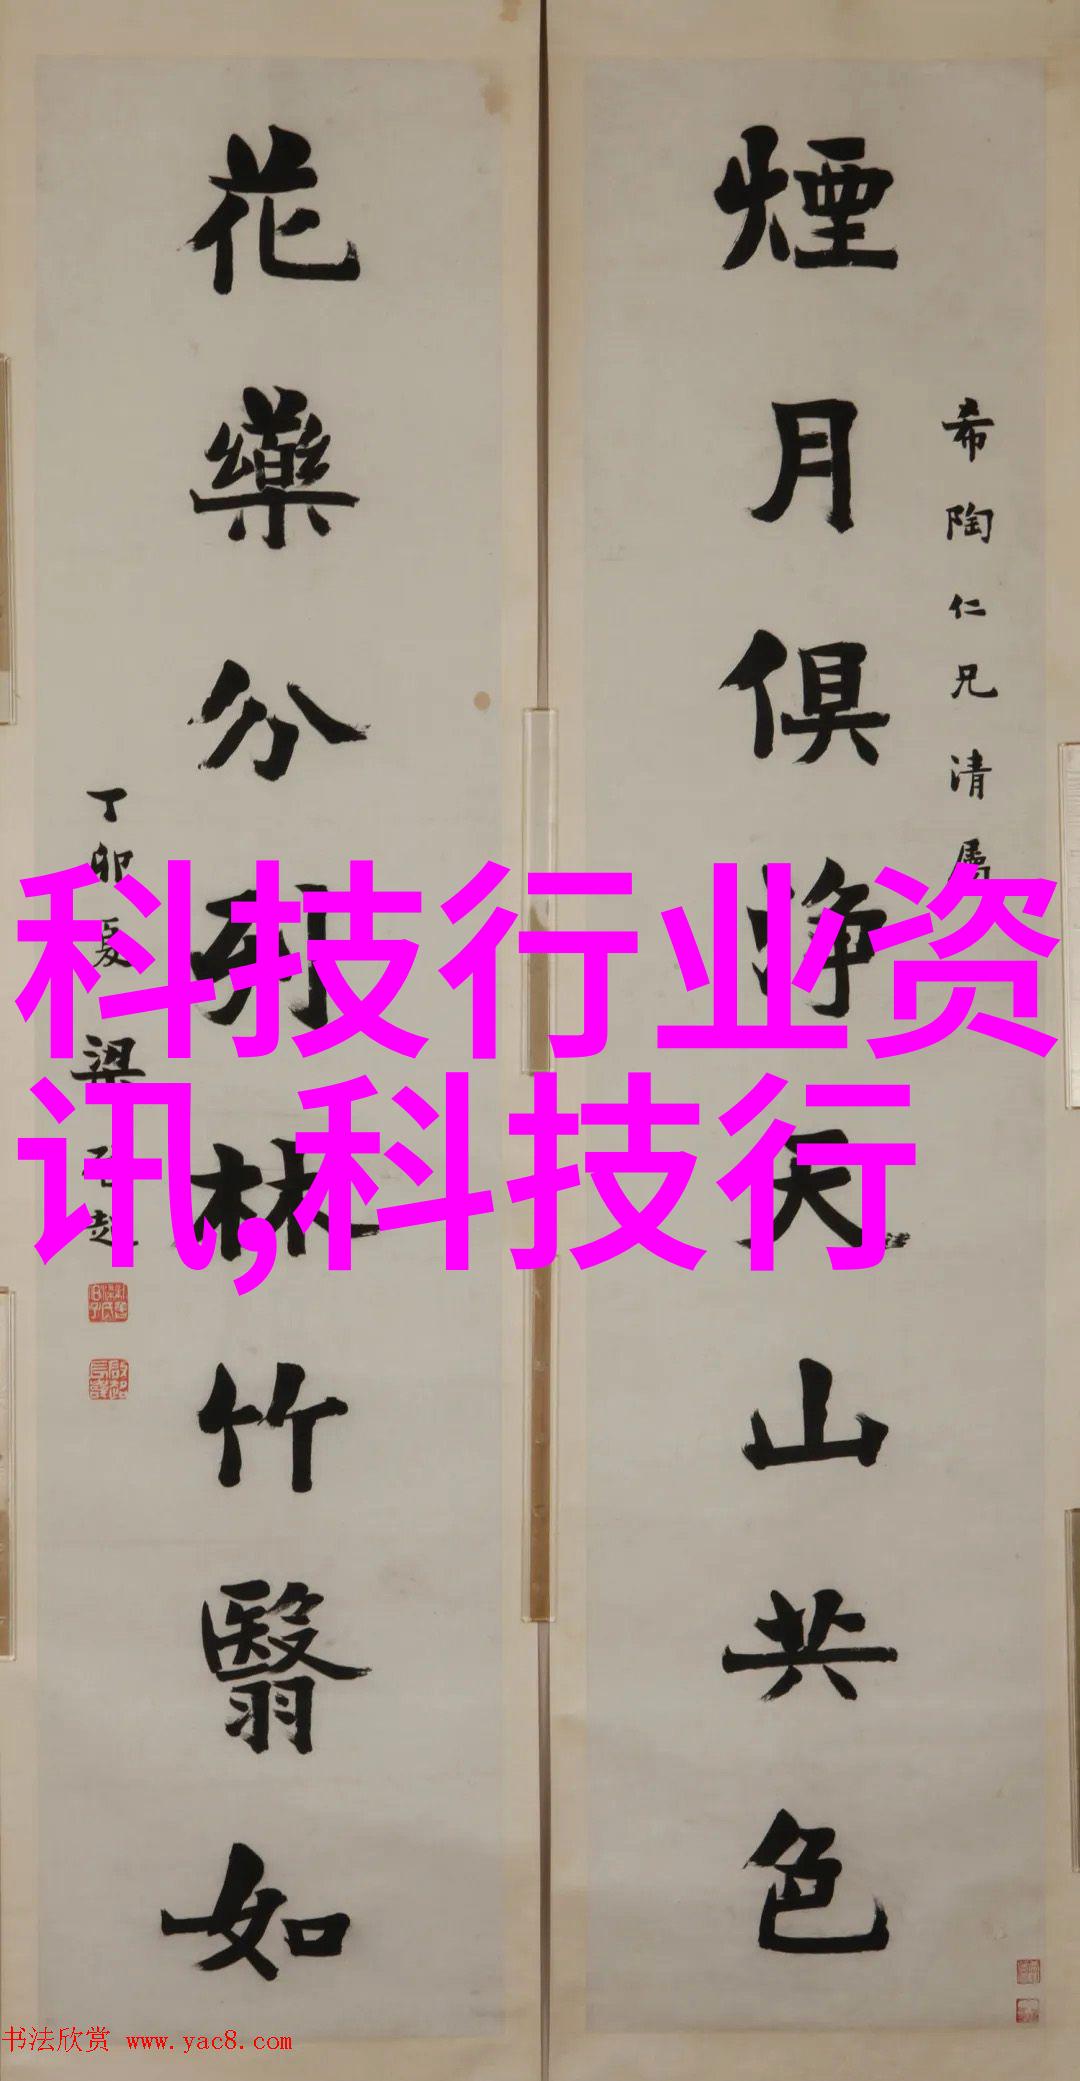 煙月俱淨天山共色
希陶仁兄清屬
花藥分列林竹翳如
丁卯夏 梁啟超
科技行业资
讯,科技行
书法欣赏 www.yac8.com